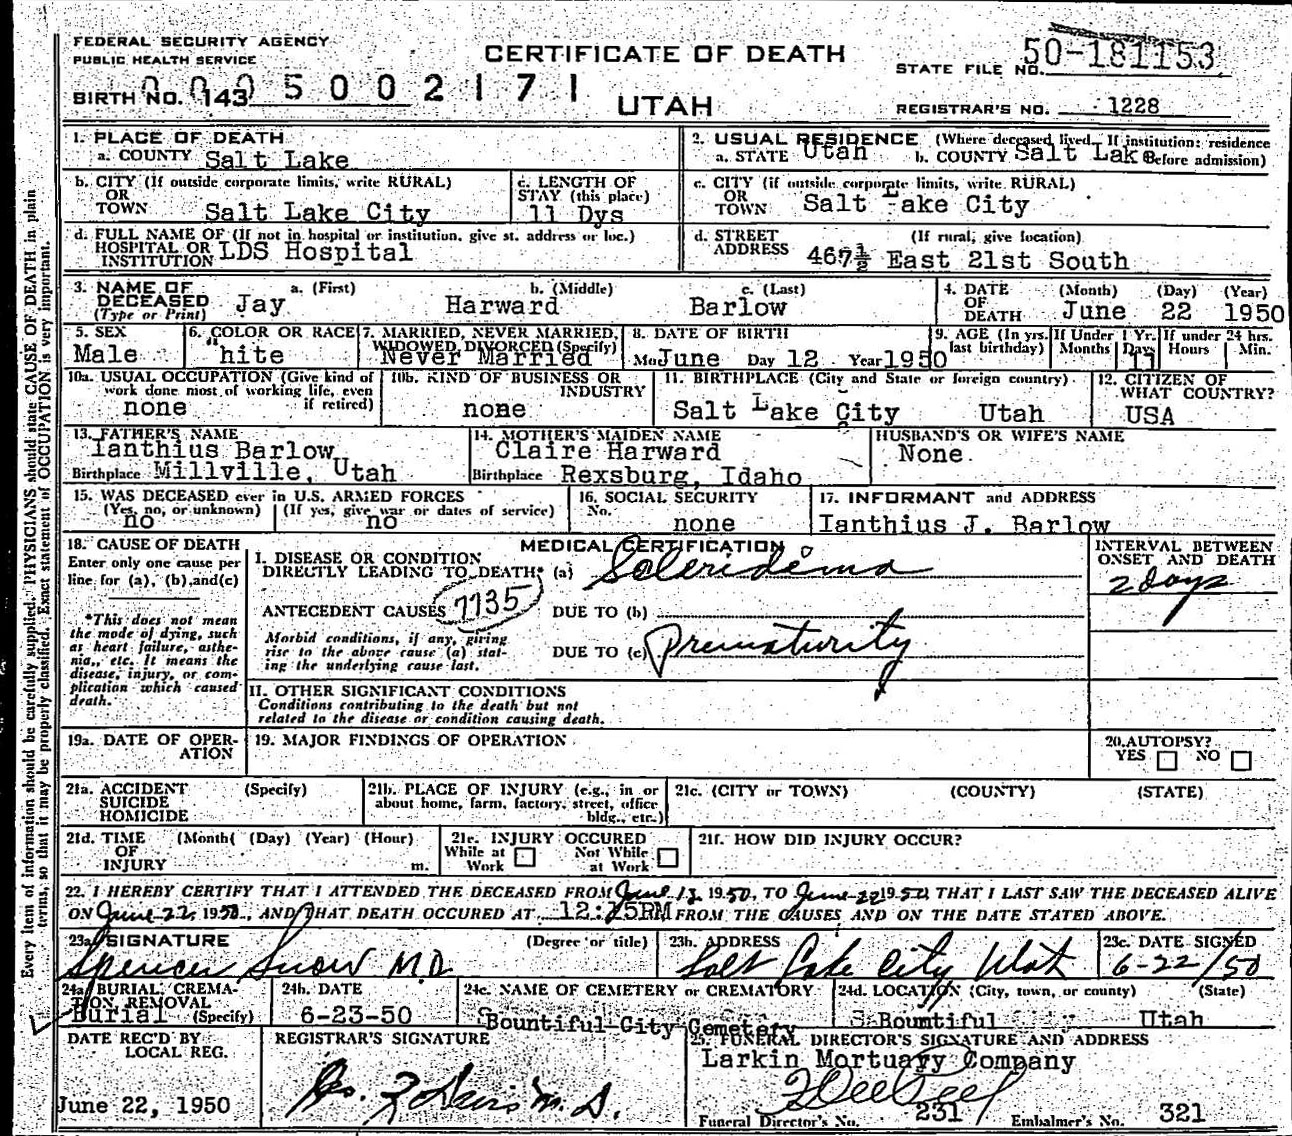 FEDERAL SECURITY AGENCY
PUBLIC HEALTH SERVICE
CERTIFICATE OF DEATH
STATE FILE NO. 50-181153
BIRTH NO. 143 0005002171
UTAH
REGISTRAR'S NO. 1228
1. PLACE OF DEATH
a. COUNTY Salt Lake
2. USUAL RESIDENCE (Where deceased lived. If institution: residence
a. STATE Utah b. COUNTY Salt Lake before admission)
b. CITY (If outside corporate limits, write RURAL)
OR
TOWN Salt Lake City
c. LENGTH OF
STAY (this place)
11 Dys
c. CITY (if outside corporate limits, write RURAL)
OR
TOWN Salt Lake City
d. FULL NAME OF (If not in hospital or institution, give st. address or loc.)
HOSPITAL OR
INSTITUTION LDS Hospital
d. STREET (If rural, give location)
ADDRESS 467½ East 21st South
3. NAME OF a. (First) b. (Middle) c. (Last)
DECEASED Jay Harward Barlow
(Type or Print)
4. DATE (Month) (Day) (Year)
OF
DEATH June 22 1950
5. SEX
Male
6. COLOR OR RACE
White
7. MARRIED, NEVER MARRIED,
WIDOWED, DIVORCED (Specify)
Never Married
8. DATE OF BIRTH
Mo June Day 12 Year 1950
9. AGE (In yrs. last birthday)
If Under 1 Yr. Months Days 11
If under 24 hrs. Hours Min.
10a. USUAL OCCUPATION (Give kind of
work done most of working life, even
if retired)
none
10b. KIND OF BUSINESS OR
INDUSTRY
none
11. BIRTHPLACE (City and State or foreign country)
Salt Lake City Utah
12. CITIZEN OF
WHAT COUNTRY?
USA
13. FATHER'S NAME
Ianthius Barlow
Birthplace Millville, Utah
14. MOTHER'S MAIDEN NAME
Claire Harward
Birthplace Rexsburg, Idaho
HUSBAND'S OR WIFE'S NAME
None
15. WAS DECEASED ever in U.S. ARMED FORCES
(Yes, no, or unknown) (If yes, give war or dates of service)
no no
16. SOCIAL SECURITY
No.
none
17. INFORMANT and ADDRESS
Ianthius J. Barlow
18. CAUSE OF DEATH
Enter only one cause per
line for (a), (b), and (c)
*This does not mean
the mode of dying, such
as heart failure, asthe-
nia, etc. It means the
disease, injury, or com-
plication which caused
death.
MEDICAL CERTIFICATION
I. DISEASE OR CONDITION
DIRECTLY LEADING TO DEATH* (a) Scleridema
ANTECEDENT CAUSES 7735 DUE TO (b)
Morbid conditions, if any, giving
rise to the above cause (a) stat-
ing the underlying cause last.
DUE TO (c) Prematurity
INTERVAL BETWEEN
ONSET AND DEATH
2 days
II. OTHER SIGNIFICANT CONDITIONS
Conditions contributing to the death but not
related to the disease or condition causing death.
19a. DATE OF OPER-
ATION
19. MAJOR FINDINGS OF OPERATION
20. AUTOPSY?
YES NO
21a. ACCIDENT (Specify)
SUICIDE
HOMICIDE
21b. PLACE OF INJURY (e.g., in or
about home, farm, factory, street, office
bldg., etc.)
21c. (CITY or TOWN) (COUNTY) (STATE)
21d. TIME (Month( (Day) (Year) (Hour)
OF
INJURY m.
21e. INJURY OCCURED
While at Work Not While at Work
21f. HOW DID INJURY OCCUR?
22. I HEREBY CERTIFY THAT I ATTENDED THE DECEASED FROM June 12, 1950, TO June 22 1950, THAT I LAST SAW THE DECEASED ALIVE
ON June 22, 1950, AND THAT DEATH OCCURED AT 12:15PM FROM THE CAUSES AND ON THE DATE STATED ABOVE.
23a. SIGNATURE (Degree or title)
Spencer Snow M.D.
23b. ADDRESS
Salt Lake City Utah
23c. DATE SIGNED
6-22/50
24a. BURIAL, CREMA-
TION, REMOVAL
Burial (Specify)
24b. DATE
6-23-50
24c. NAME OF CEMETERY or CREMATORY
Bountiful City Cemetery
24d. LOCATION (City, town, or county) (State)
Bountiful Utah
DATE REC'D BY
LOCAL REG.
June 22, 1950
REGISTRAR'S SIGNATURE
M.D.
25. FUNERAL DIRECTOR'S SIGNATURE AND ADDRESS
Larkin Mortuary Company
Funeral Director's No. 231 Embalmer's No. 321
Every item of information should be carefully supplied. PHYSICIANS should state CAUSE OF DEATH in plain
terms, so that it may be properly classified. Exact statement of OCCUPATION is very important.